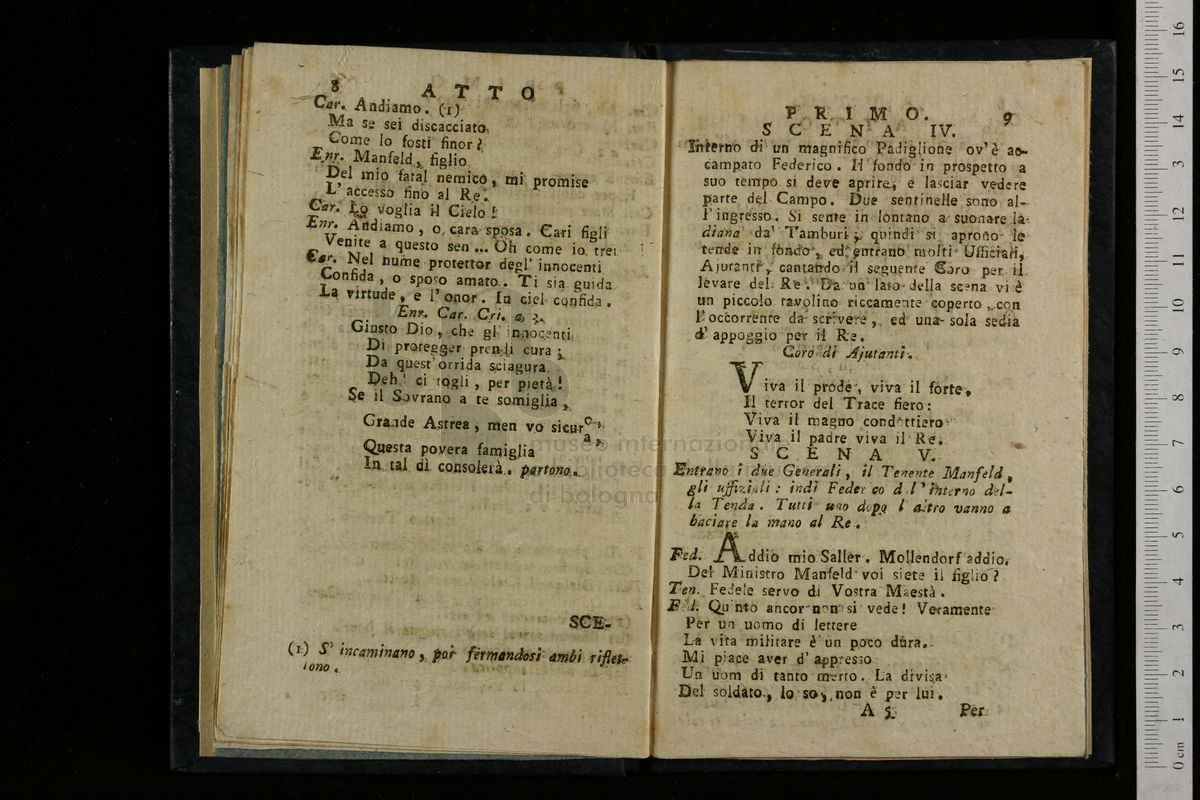 8 ATTO
Car. Andiamo. (1)
Ma se sei discacciato,
Come lo fosti finor?
Enr. Manfeld, figlio
Del mio fatal nemico, mi promise
L'accesso fino al Re.
Car. Lo voglia il Cielo!
Enr. Andiamo, o cara sposa. Cari figli
Venite a questo sen... Oh come io trei
Car. Nel nume protettor degl' innocenti
Confida, o sposo amato. Ti sia guida
La virtude, e l'onor. In ciel confida.
Enr. Car. Cri. a 3.
Giusto Dio, che gl' innocenti
Di protegger prendi cura;
Da quest'orrida sciagura
Deh! ci togli, per pietà!
Se il Sovrano a te somiglia,
Grande Astrea, men vo sicur o,
a,
Questa povera famiglia
In tal dì consolerà. partono.
SCE-
(1) S' incaminano, poi fermandosi ambi riflet-
tono.
PRIMO. 9
SCENA IV.
Interno di un magnifico Padiglione ov'è ac-
campato Federico. Il fondo in prospetto a
suo tempo si deve aprire, e lasciar vedere
parte del Campo. Due sentinelle sono al-
l'ingresso. Si sente in lontano a suonare la
diana da' Tamburi; quindi si aprono le
tende in fondo, ed entrano molti Ufficiali,
Ajutanti, cantando il seguente Coro per il
levare del Re. Da un lato della scena vi è
un piccolo tavolino riccamente coperto, con
l'occorrente da scrivere, ed una sola sedia
d'appoggio per il Re.
Coro di Ajutanti.
Viva il prode, viva il forte,
Il terror del Trace fiero:
Viva il magno condottiero
Viva il padre viva il Re.
SCENA V.
Entrano i due Generali, il Tenente Manfeld,
gli uffiziali: indi Feder co d l'interno del-
la Tenda. Tutti uno dopo l'altro vanno a
baciare la mano al Re.
Fed. Addio mio Saller. Mollendorf addio.
Del Ministro Manfeld voi siete il figlio?
Ten. Fedele servo di Vostra Maestà.
Fed. Quinto ancor non si vede! Veramente
Per un uomo di lettere
La vita militare è un poco dura.
Mi piace aver d'appresso
Un uom di tanto merto. La divisa
Del soldato, lo so, non è per lui.
A 5 Per
museo internazionale
biblioteca
di bologna